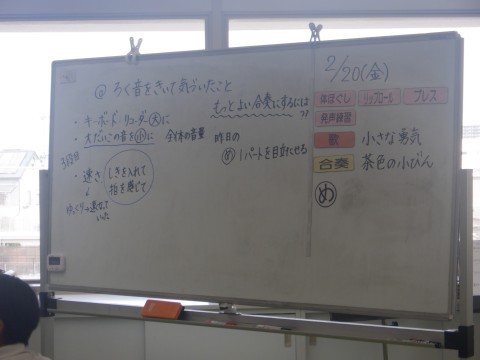 ろく音をきいて気づいたこと
もっとよい合奏にするには
??
・キーボード・リコーダー大に
・大だいこの音を小に 全体の音量
昨日の
め 1パートを目立たせる
3日目
・速さ
しきを入れて
拍を感じて
ゆっくり→速くなって
いった
2/20(金)
体ほぐし リップロール ブレス
発声練習
歌 小さな勇気
合奏 茶色の小びん
め